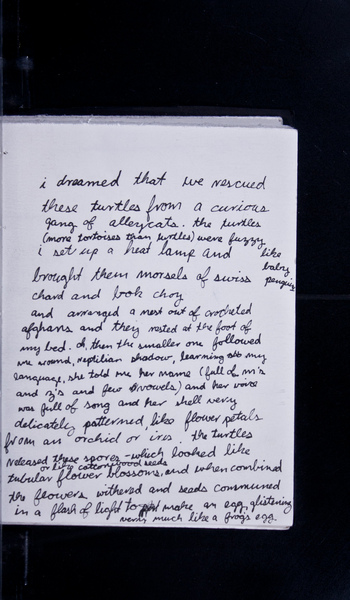 i dreamed that we rescued
these turtles from a curious
gang of alleycats. the turtles
(more tortoises than turtles) were fuzzy
like baby penguins
i set up a heat lamp and
brought them morsels of swiss
chard and bok choy
and arranged a nest out of crocheted
afghans and they rested at the foot of
my bed. oh, then the smaller one followed
me around, reptilian shadow, learning my
language, she told me her name (full of m's
and z's and few vowels) and her voice
was full of song and her shell very
delicately patterned, like flower petals
from an orchid or iris. the turtles
released these spores - which looked like
or like cottonwood seeds
tubular flower blossoms, and when combined
the flowers withered and seeds communed
in a flash of light to make an egg, glistening
very much like a frog's egg.